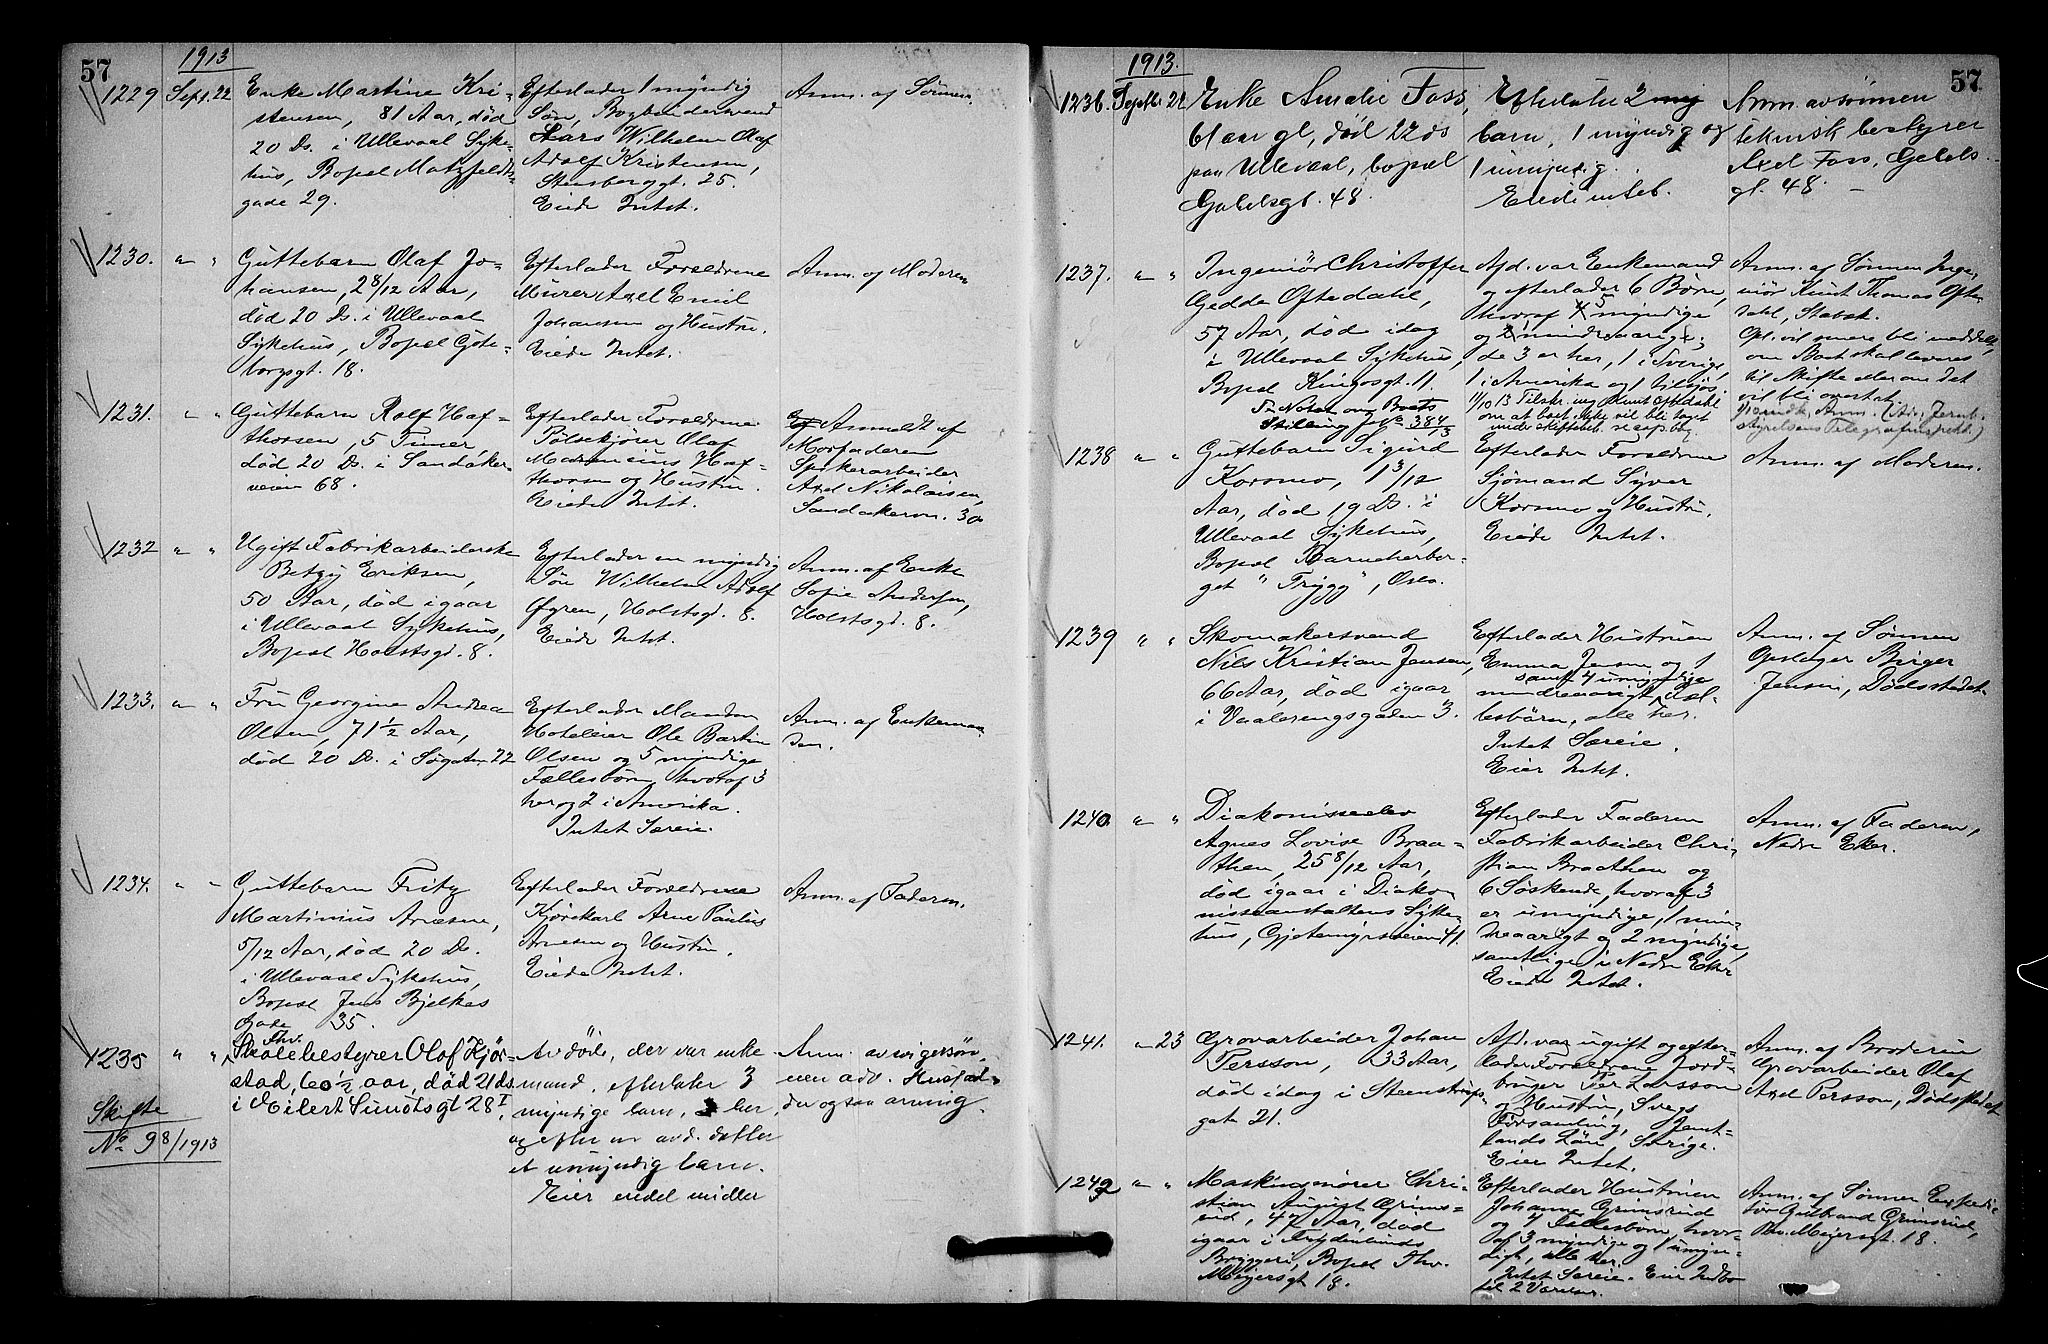 57
1913
1229 Sept. 22
Enke Martine Kri-
stensen, 81 Aar, död
20 Ds. i Ullevaal Syke-
hus, Bopæl Motzfeldts-
gade 29.
Efterlader 1 myndig
Søn, Bogbindersvend
Lars Wilhelm Olaf
Adolf Kristensen,
Stensberggt. 25.
Eiede Intet.
Anm. af Sønnen
1230. " "
Guttebarn Olaf Jo-
hansen, 2 8/12 Aar,
död 20 Ds. i Ullevaal
Sykehus, Bopæl Göte-
borgsgt. 18.
Efterlader Forældrene
Murer Axel Emil
Johansen og Hustru.
Eiede Intet.
Anm. af Moderen
1231. " "
Guttebarn Rolf Haf-
thorsen, 5 Timer
död 20 Ds. i Sandaker-
veien 68.
Efterlader Forældrene
Pölsekjører Olaf
Haf-
thorsen og Hustru.
Eiede Intet.
Anmeldt af
Morfaderen
Spikerarbeider
Axel Nikolaisen,
Sandakervn. 30
1232 " "
Ugift Fabrikarbeiderske
Betzy Eriksen,
50 Aar, död igaar
i Ullevaal Sykehus,
Bopæl Holstsgd. 8.
Efterlader en myndig
Sön Wilhelm Adolf
Øgren, Holstsgd. 8.
Eiede Intet.
Anm. af Enke
Sofie Andersen,
Holstsgd. 8.
1233. " "
Fru Georgine Andrea
Olsen, 71 1/2 Aar,
död 20 Ds. i Søgaten 22
Efterlader Manden
Hoteleier Ole Bartin
Olsen og 5 myndige
Fællesbörn, hvoraf 3
her og 2 i Amerika.
Intet Særeie.
Anm. af Enkeman-
den.
1234. " "
Guttebarn Fritz
Martinius Arnesen,
5/12 Aar, död 20 Ds.
i Ullevaal Sykehus,
Bopæl Jens Bjelkes
Gade 35.
Efterlader Forældrene
Kjørekarl Arne Paulus
Arnesen og Hustru.
Eiede Intet.
Anm. af Faderen.
1235 " "
Fhv.
Skolebestyrer Olaf Kjör-
stad, 60 1/2 aar, död 21 ds
i Eilert Sundtsgt 28 I,
Skifte
No 98/1913
Avdöde, der var enke-
mand, efterlater 3
myndige barn, her,
og efter en avd. datter
et umyndig barn.
Eier endel midler
Anm. av svigersøn-
nen adv. Husfad
der ogsaa arving.
57
1913.
1236. Septbr 22
Enke Amalie Foss,
61 aar gl, død 22 ds
paa Ullevaal, bopæl
Geldsgt. 48
Efterlater 2
barn, 1 myndig og
1 umyndig.
Eiede intet.
Anm. av sønnen
teknisk bestyrer
Axel Foss, Gelds-
gt. 48. —
1237. " "
Ingeniör Christoffer
Gedde Oftedahl,
57 Aar, död idag
i Ullevaal Sykehus,
Bopæl Kingosgt. 11.
Se Noten om Boets
Stilling J.No 384/13
Afd. var Enkemand
og efterlader 6 Børn,
hvoraf 5 myndige
og 1 mindreaarig,
de 3 er her, 1 i Sverige,
1 i Amerika og 1 tilsjøs
11/10 13 Tilskr. ing Knut Oftedahl
om at boet ikke vil bli taget
under skiftebeh.
Anm. af Sønnen Inge-
niør Knut Thomas Ofte-
dahl, Stabæk.
Opl. vil senere bli meddelt,
om Boet skal leveres
til Skifte eller om det
vil bli overtat
1238 " "
Guttebarn Sigurd
Korsmo, 1 3/12
Aar, död 19 Ds. i
Ullevaal Sykehus,
Bopæl Barneherber-
get "Trygg", Oslo.
Efterlader Forældrene
Sjömand Syver
Korsmo og Hustru.
Eiede Intet.
Anm. af Moderen.
1239 " "
Skomakersvend
Nils Kristian Jensen,
66 Aar, död igaar
i Vaalerengsgaden 3.
Efterlader Hustruen
Emma Jensen og 1
samt 4 umyndige
mindreaarigt Fæl-
lesbörn, alle her.
Intet Særeie.
Eier Intet.
Anm. af Sønnen
Opslager Birger
Jensen, Dødsstedet.
1240. " "
Diakonisseelev
Agnes Lovise Braa-
then, 25 8/12 Aar,
död igaar i Diakon-
nisseanstaltens Syke-
hus, Gjetemyrsveien 41.
Efterlader Faderen
Fabrikarbeider Chri-
stian Braathen og
6 Søskende, hvoraf 3
er umyndige, 1 min-
dreaarigt og 2 myndige,
samtlige i Nedre Eker
Eiede Intet.
Anm. af Faderen,
Nedre Eker.
1241. " 23
Grovarbeider Johan
Persson, 33 Aar,
död idag i Steenstrups-
gate 21.
Afd. var ugift og efter-
lader Forældrene Jord-
bruger Per Larsson
og Hustru, Svegs
Församling, Jemt-
lands Län, Sverige.
Eier Intet.
Anm. af Broderen
Grovarbeider Olaf
Axel Persson, Dødsstedet
1242 " "
Maskinsmører Chri-
stian August Grims-
rud, 47 Aar, død
igaar i Frydenlunds
Bryggeri, Bopæl Thv.
Meyersgt 18.
Efterlader Hustruen
Johanne Grimsrud
og 4 Fællesbörn, hvor-
af 3 myndige og 1 umyn-
digt, alle her.
Intet Særeie. Eier Indbo
til 2 Værelser.
Anm. af Sønnen Expedi-
tør Gulbrand Grimsrud,
Thv. Meyersgt. 18.